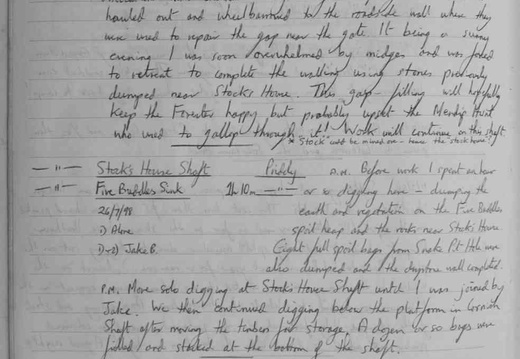 hauled out and wheelbarrowed to the roadside wall where they
were used to repair the gap near the gate. It being a sunny
evening I was soon overwhelmed by midges and was forced
to retreat to complete the walling using stones previously
dumped near Stock's House. This gap-filling will hopefully
keep the Forester happy but probably upset the Mendip Hunt
who used to gallop through it! Work will continue on this shaft.
* "Stock" will be mixed ore - hence the stock house
— " — Stock's House Shaft Priddy A.M. Before work I spent an hour
— " — Five Buddles Sink 1h 10m — " — or so digging here - dumping the
26/7/98 earth and vegetation on the Five Buddles
1) Alone spoil heap and the rocks near Stock's House
1)-2) Jake B. Eight full spoil bags from Snake Pit Hole were
also dumped and the drystone wall completed.
P.M. More solo digging at Stock's House Shaft until I was joined by
Jake. We then continued digging below the platform in Cornish
Shaft after moving the timber for storage. A dozen or so bags were
filled and stacked at the bottom of the shaft.